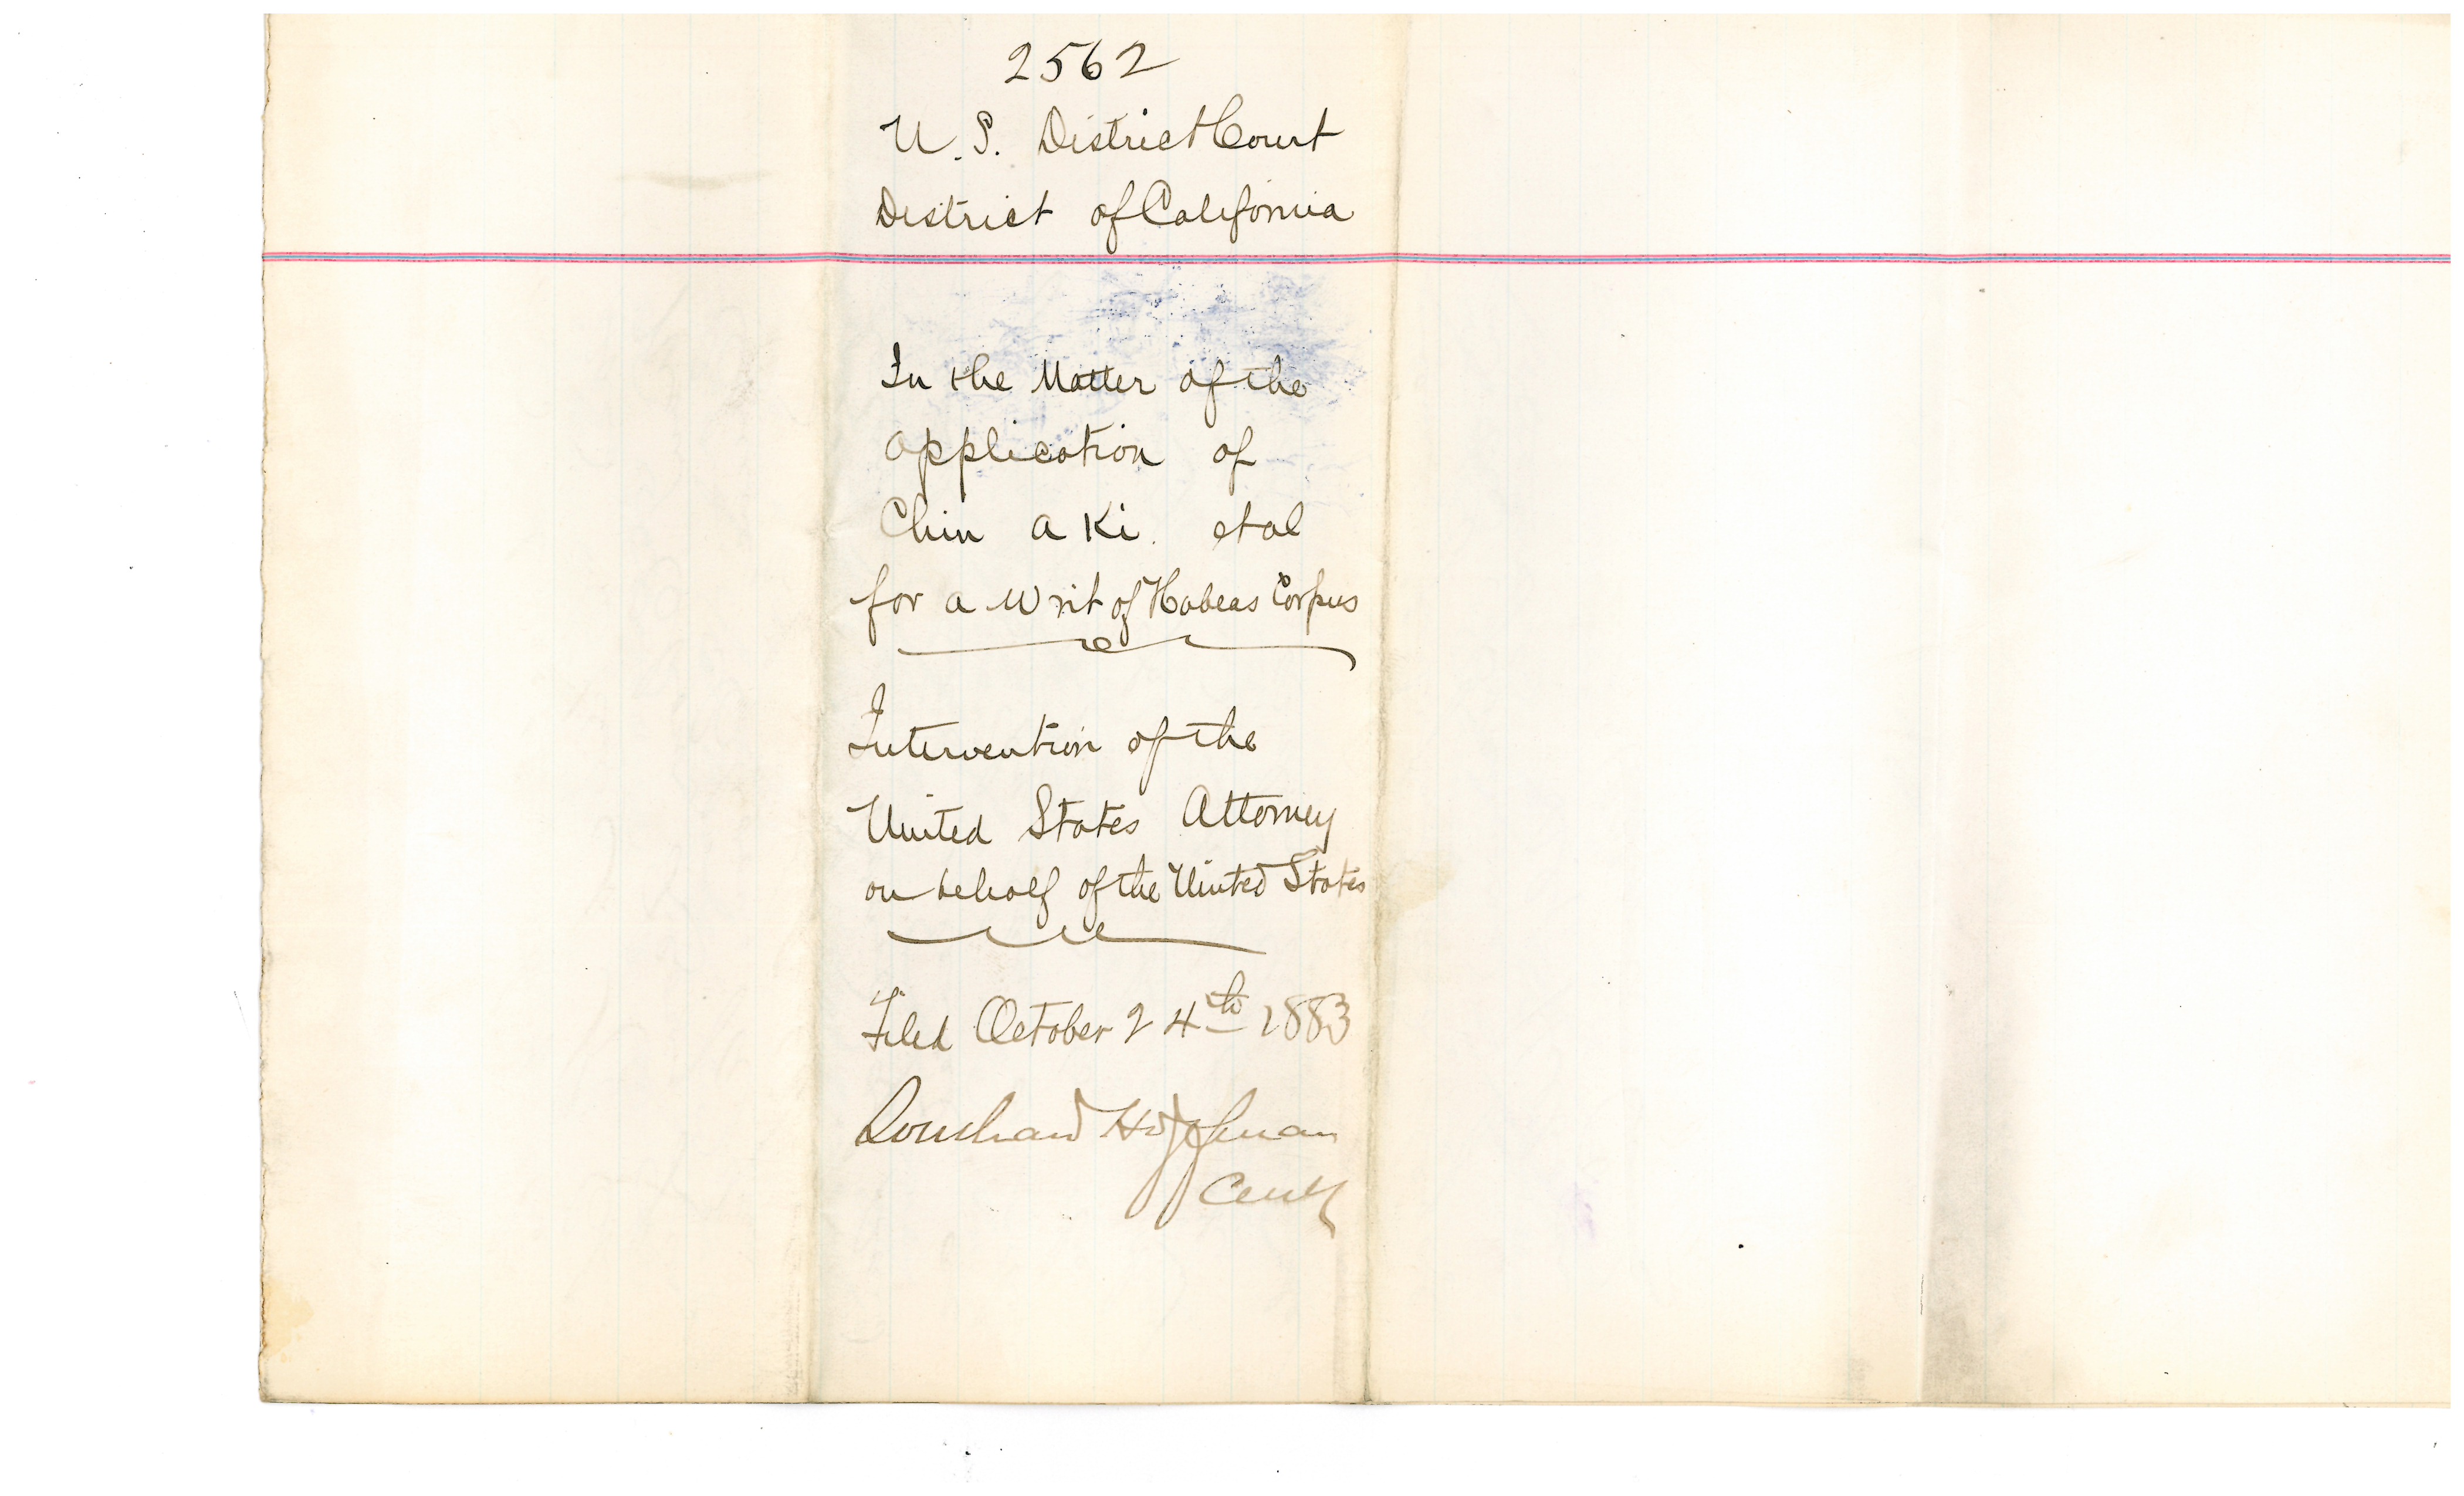 2562
U.S. District Court
District of California
In the Matter of the
application of
Chin a Ki. et al
for a Writ of Habeas Corpus
Intervention of the
United States Attorney
on behalf of the United States
Filed October 24th 1883
Southard Hoffman
Clerk